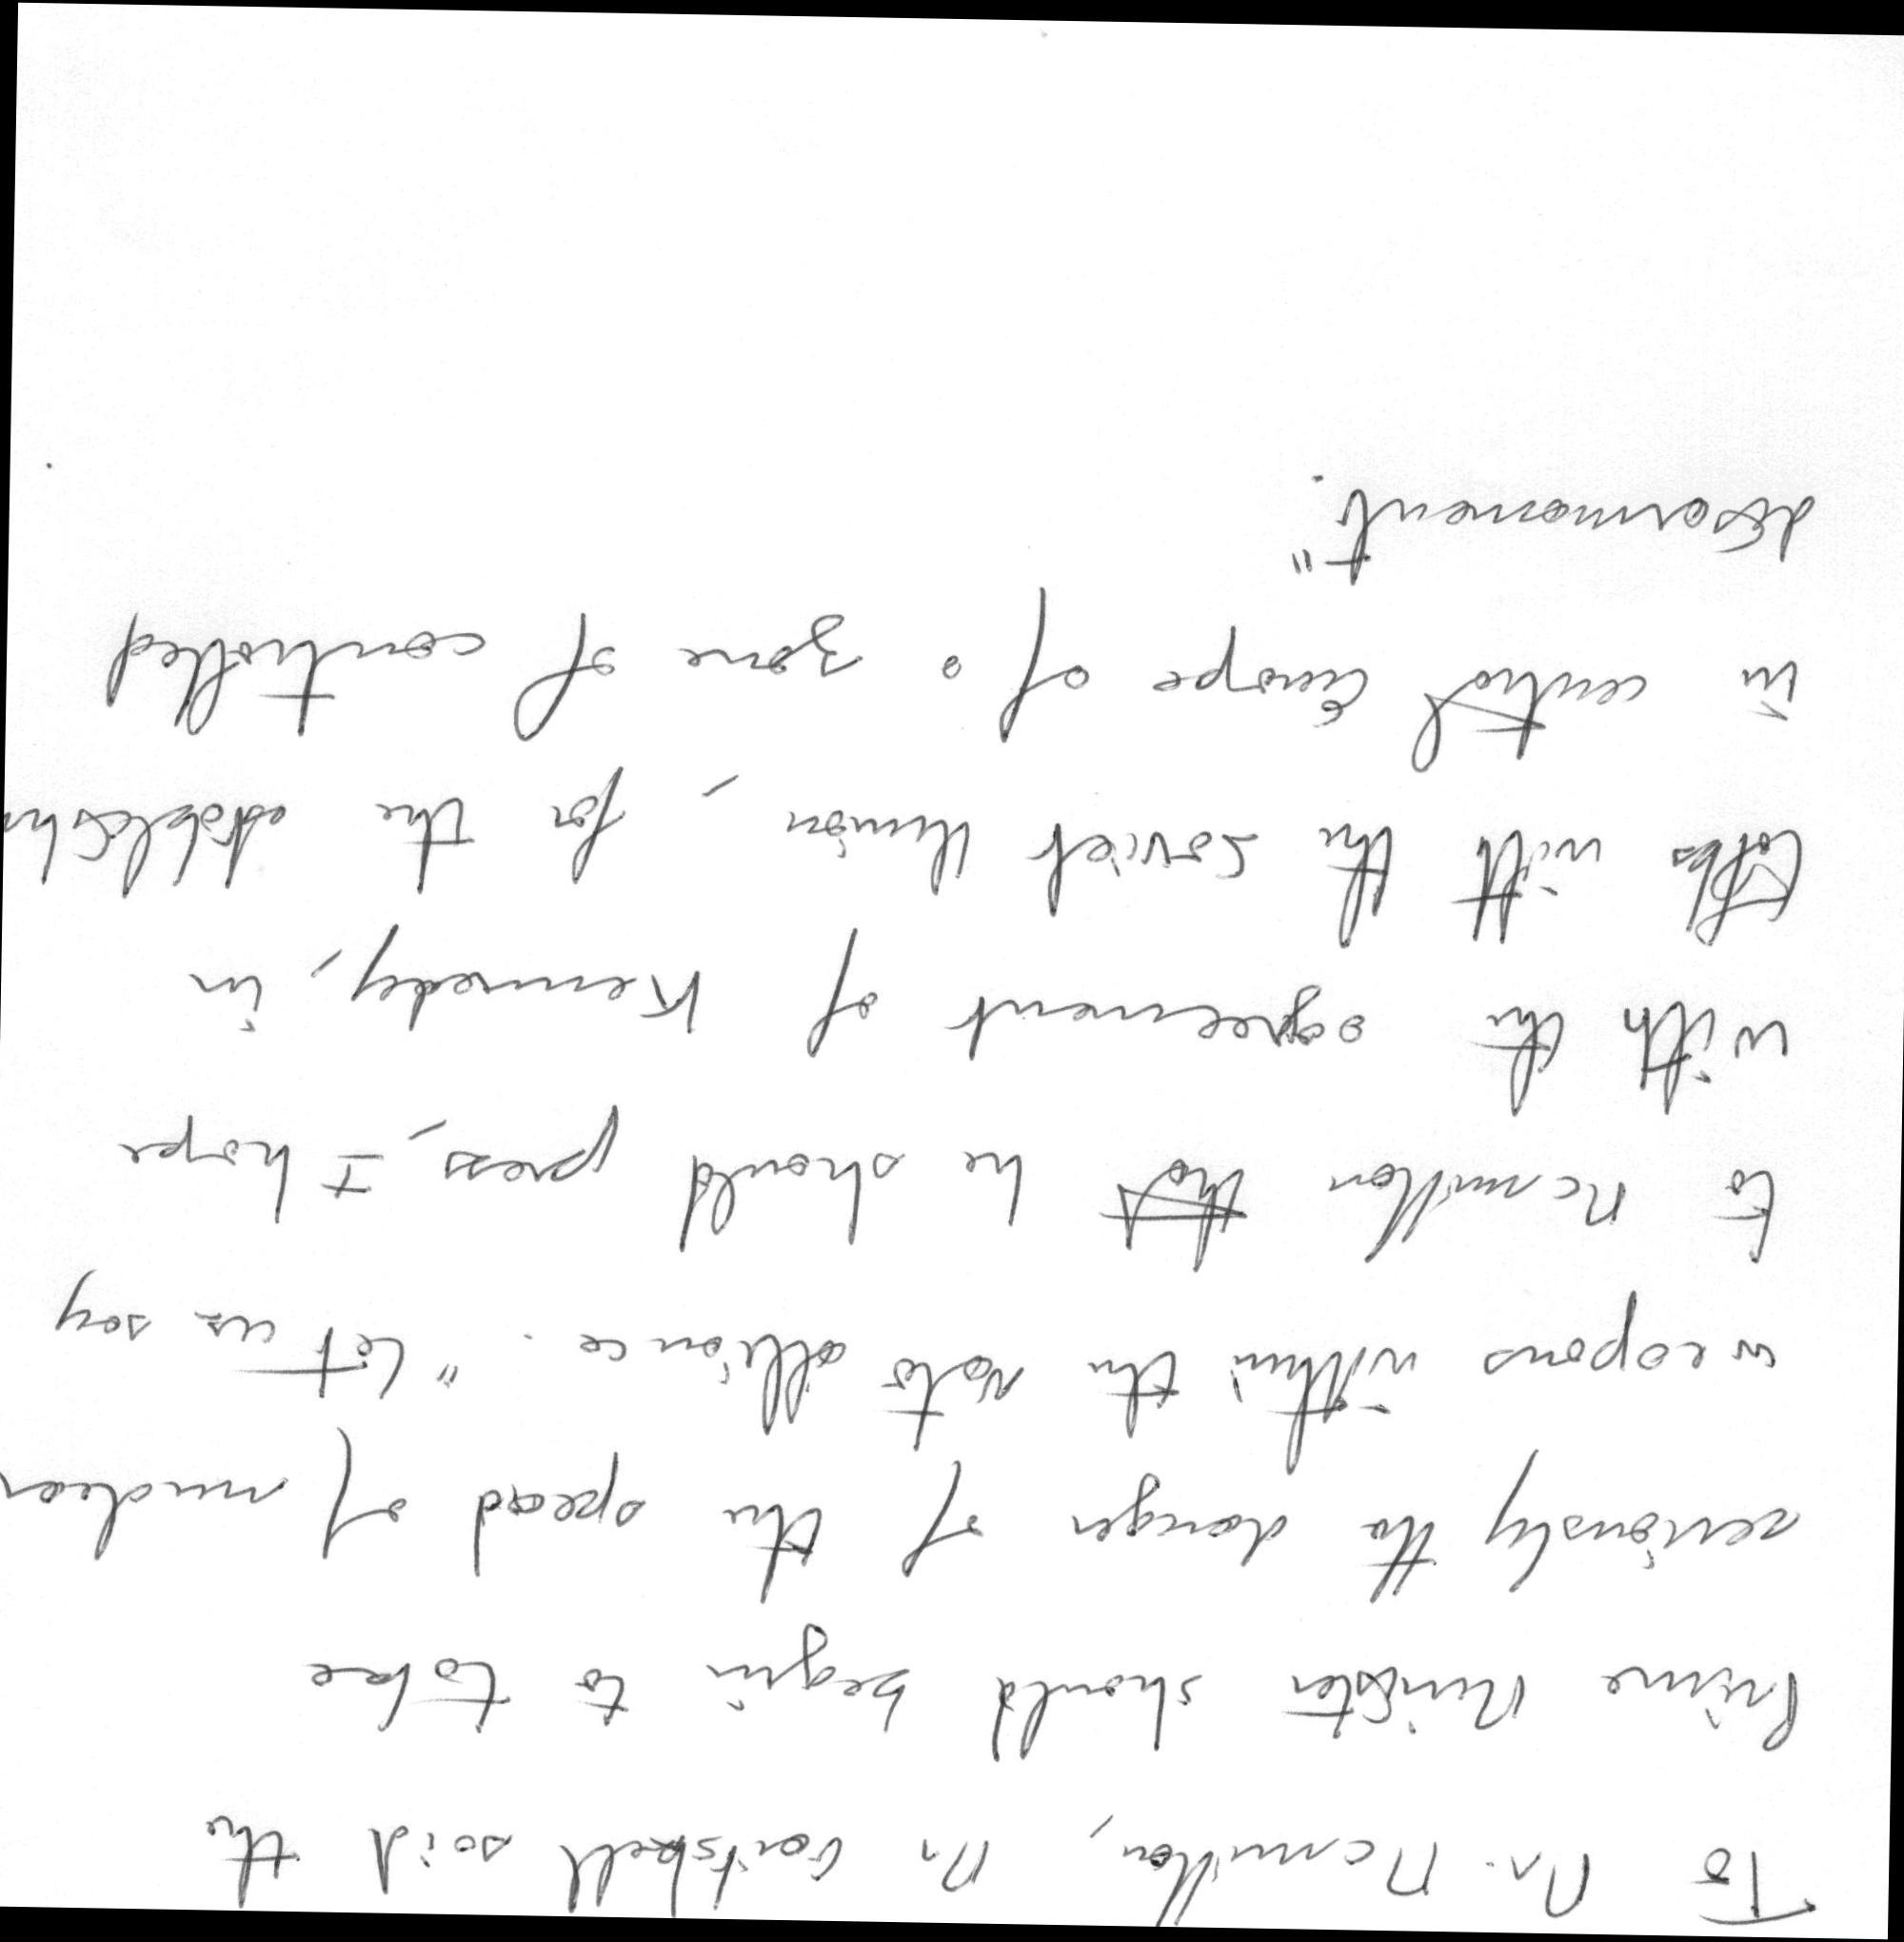 To Mr. Mcmillan, Mr Gaitskell said the
Prime Minister should begin to take
seriously the danger of the spead of nuclear
weapons within the nato alliance. "Let us say
to Mcmillan that he should press, I hope
with the agreement of Kennedy, in
talks with the Soviet Union, for the establishm
in central Europe of a zone of controlled
disarmament".